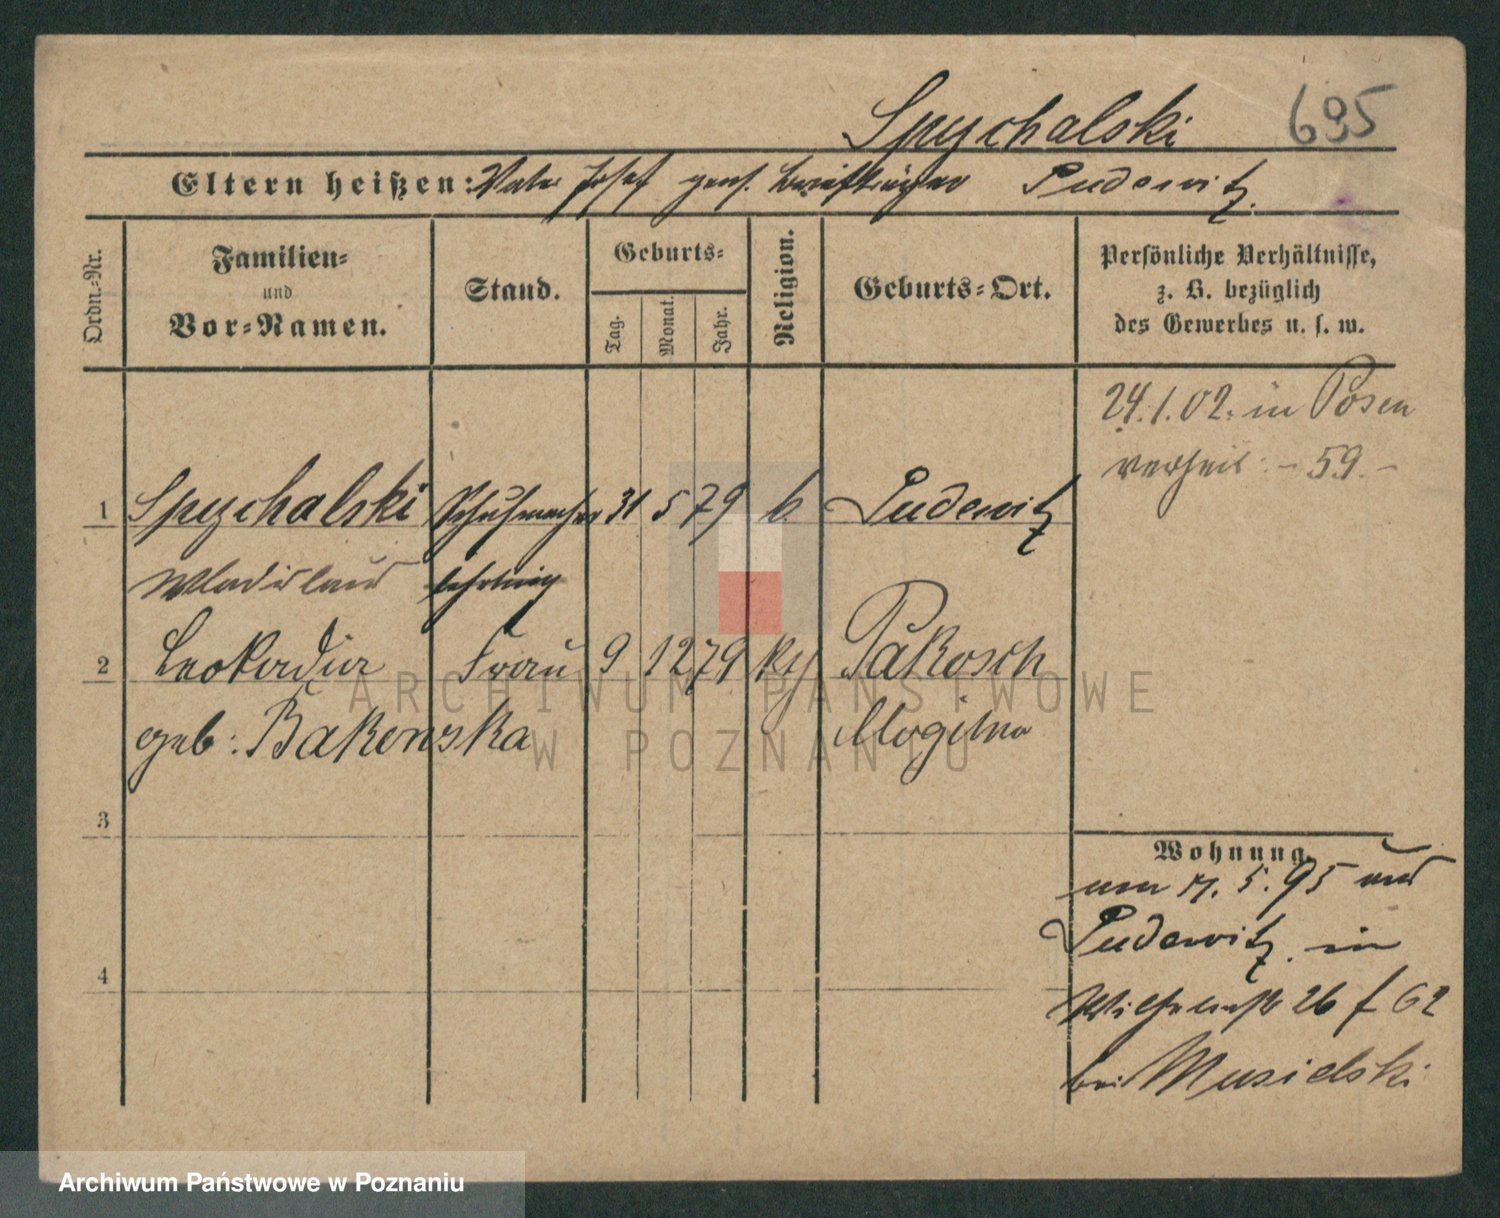 Spychalski 695
Eltern heißen: Vater Josef gew. Briefträger Pudewitz.
Ordn.-Nr.
Familien-
und
Vor-Namen.
Stand.
Geburts-
Tag.
Monat.
Jahr.
Religion.
Geburts-Ort.
Persönliche Verhältnisse,
z. B. bezüglich
des Gewerbes u. s. w.
24.1.02. in Posen
verheir. - 59. -
1 Spychalski Schuhmacher 31 5 79 k. Pudewitz
Wladislaus lehrling
2 Leokadia Frau 9 12 79 Pakosch
geb: Bakowska Mogilno
3
Wohnung.
5. 95
Pudewitz. in
4
Wilhelmstr 26 f 62
bei Musielski
ARCHIWUM PAŃSTWOWE
W POZNANIU
Archiwum Państwowe w Poznaniu